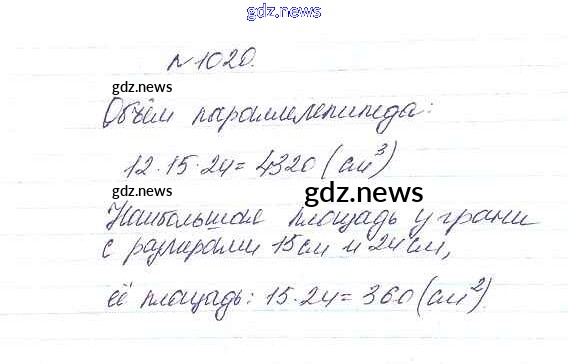 gdz.news
№ 1020.
gdz.news
Объём параллелепипеда:
12·15·24=4320 (см³)
gdz.news
gdz.news
Наибольшая площадь у грани
с размерами 15см и 24см,
её площадь: 15·24=360 (см²).
gdz.news